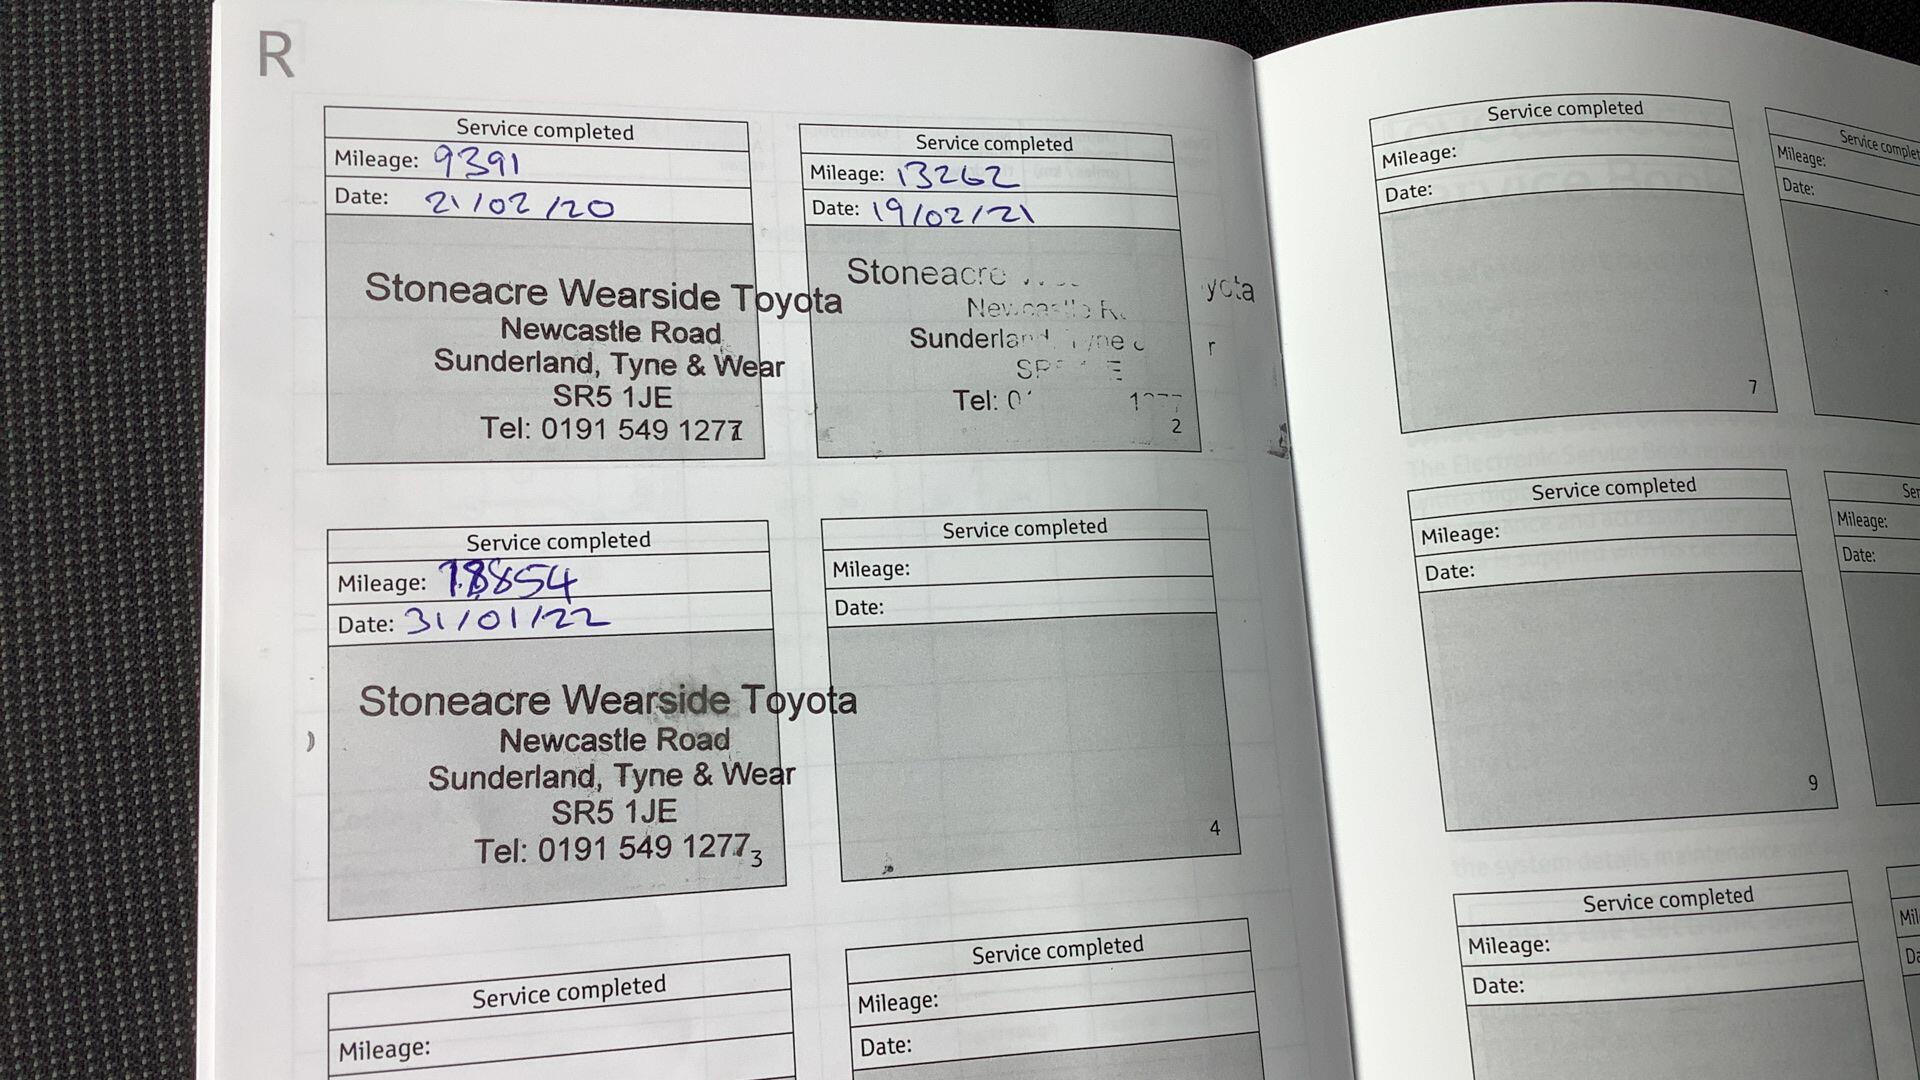 R
Service completed
Mileage: 9391
Date: 21/02/20
Stoneacre Wearside Toyota
Newcastle Road
Sunderland, Tyne & Wear
SR5 1JE
Tel: 0191 549 1277
Service completed
Mileage: 13262
Date: 19/02/21
Stoneacre
Tel:
2
Service completed
Mileage: 18854
Date: 31/01/22
Stoneacre Wearside Toyota
Newcastle Road
Sunderland, Tyne & Wear
SR5 1JE
Tel: 0191 549 1277
3
Service completed
Mileage:
Date:
4
Service completed
Mileage:
Service completed
Mileage:
Date:
Service completed
Mileage:
Date:
7
Mileage:
Date:
Service completed
Mileage:
Date:
9
Mileage:
Date:
Service completed
Mileage:
Date: